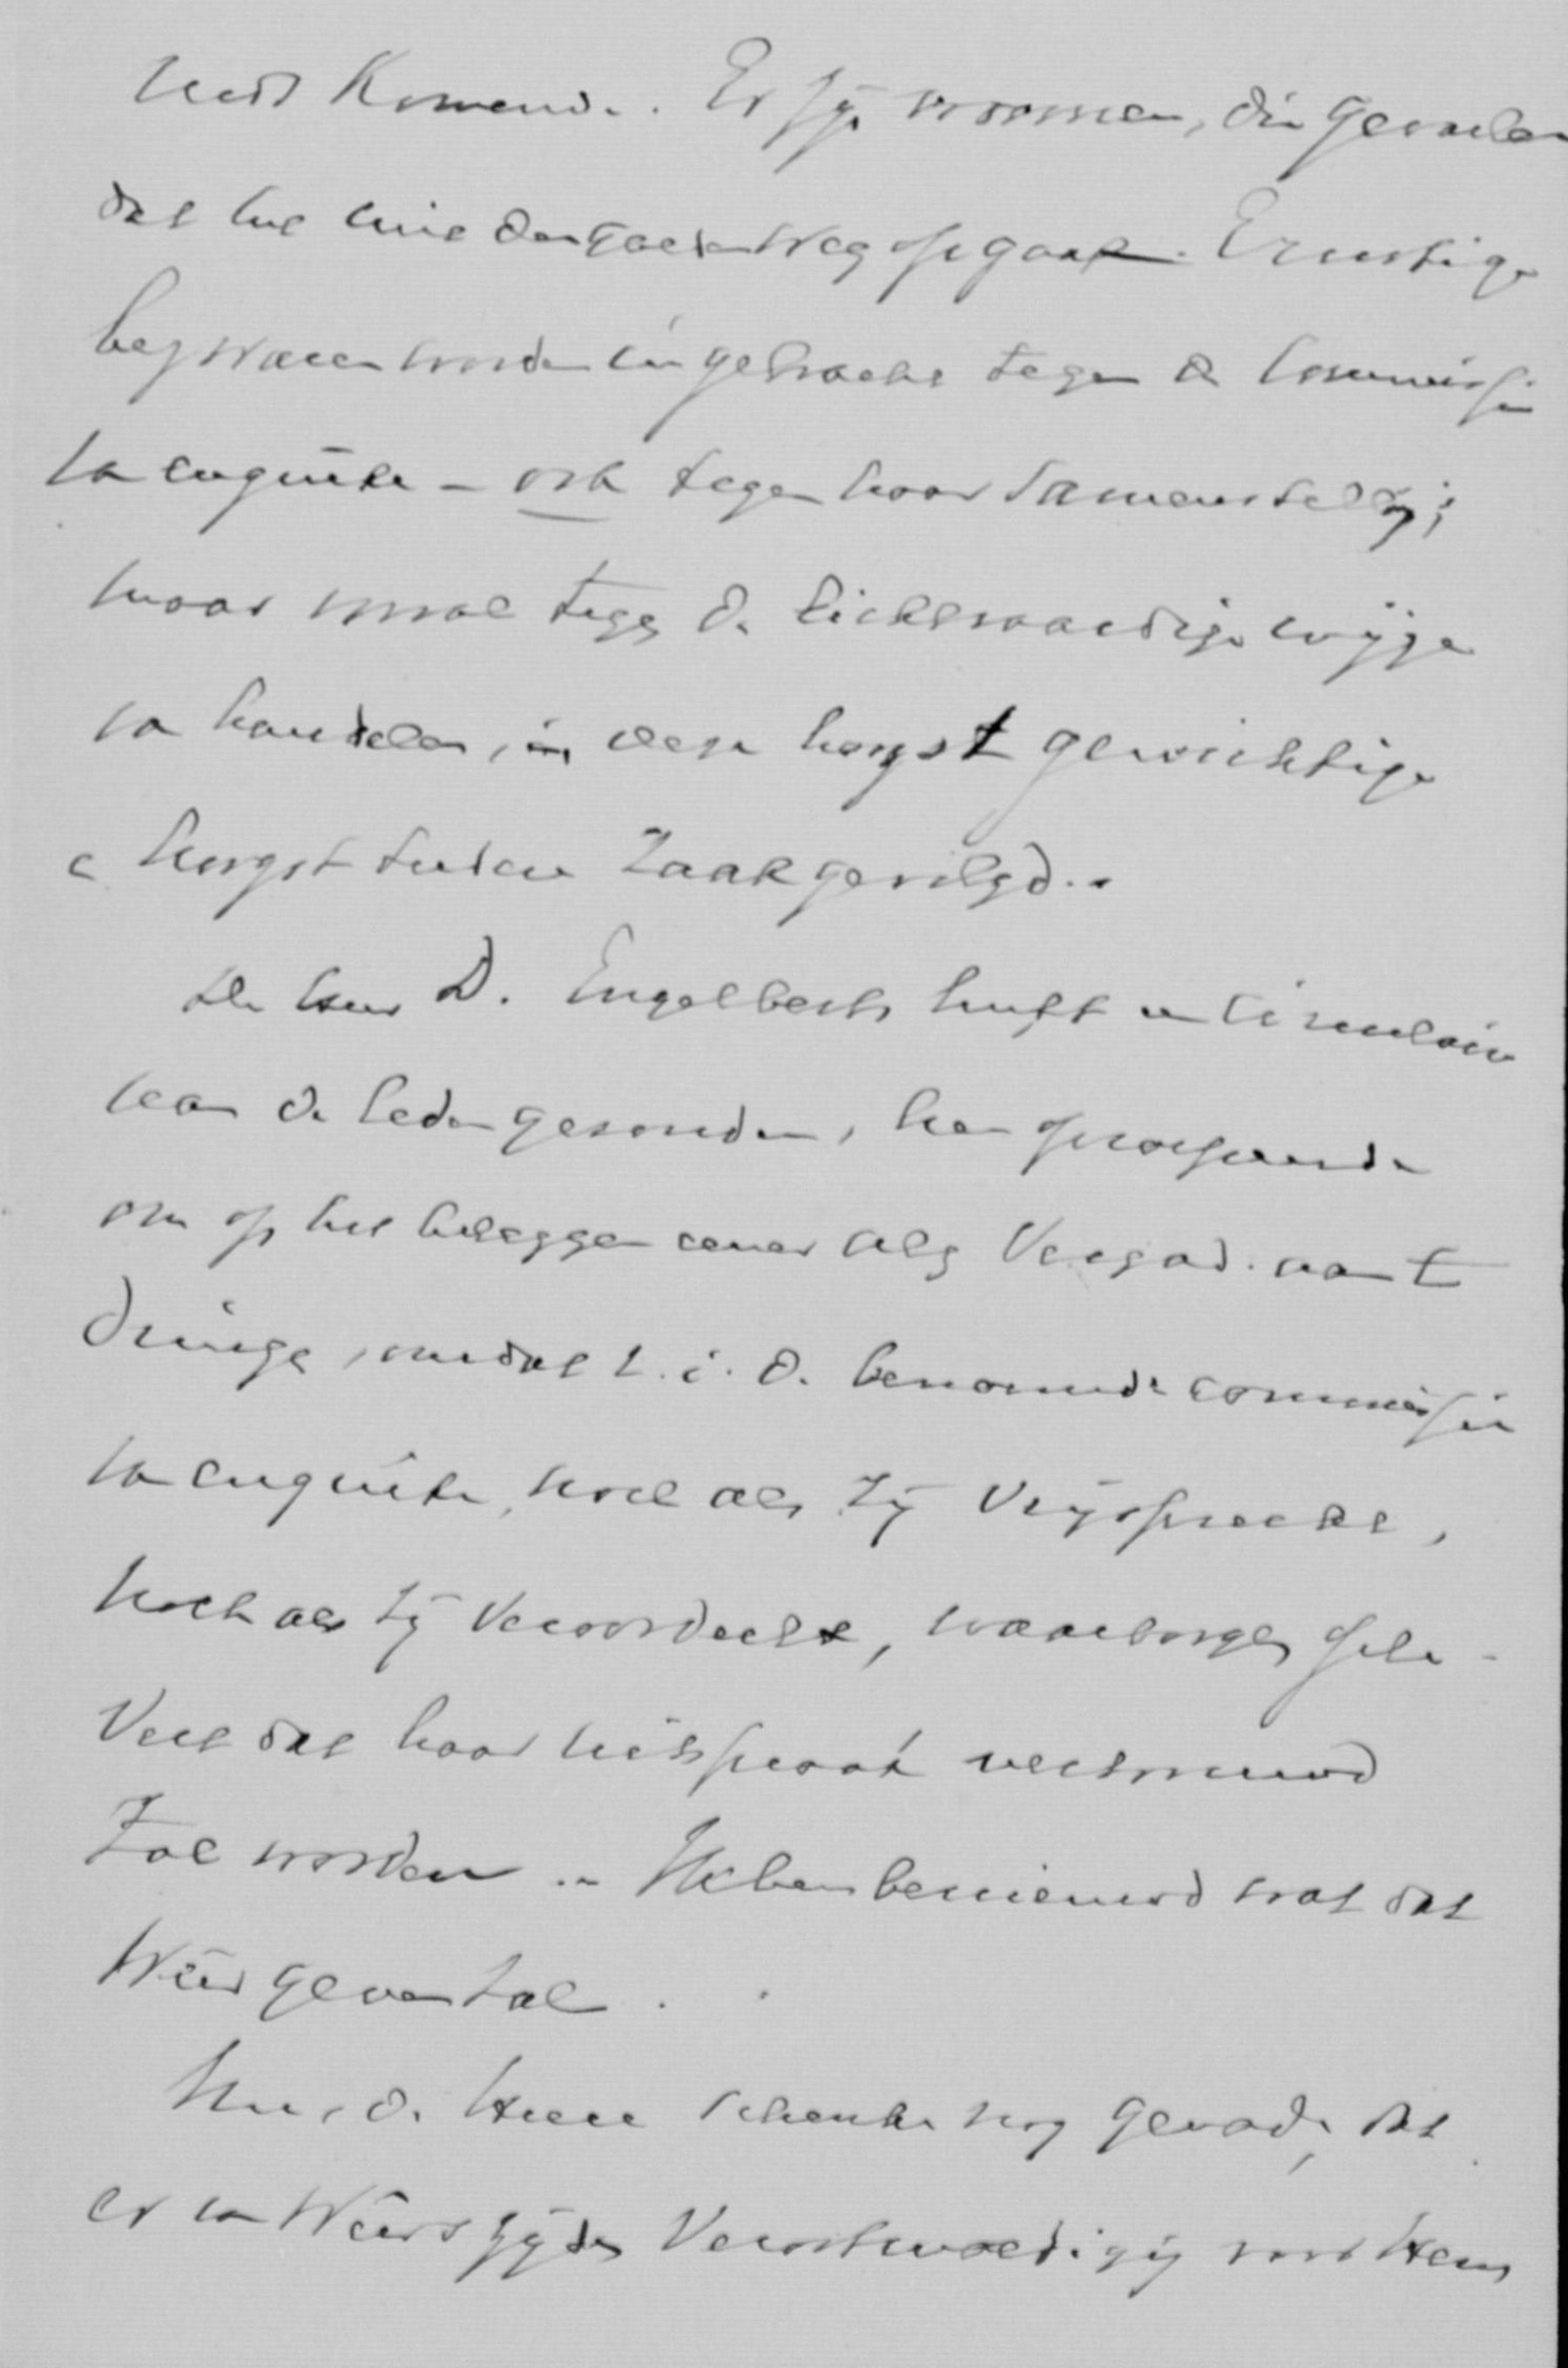 komende. Er zijn vromen, die gevoelen
dat het niet den goeden weg opgaat. Ernstige
bezwaren worden ingebracht tegen de Commissie
van enquête – ook tegen haar samenstelling;
maar vooral tegen de lichtvaardige wijze
van handelen, in deze hoogst gewichtige
en hoogst teedere zaak gevolgd.
De heer D. Engelberts heeft een circulaire
aan de leden gezonden, hen oproepende
om op het beleggen eener alg Vergad. aan te
dringen, omdat z.i. de benoemde commissie
van enquête, noch als zij vrijspreekt,
noch als zij veroordeelt, waarborgen gele-
vert dat haar uitspraak vertrouwd
zal worden. Ik ben benieuwd wat dat
weer geven zal.
Nu, de Heere schenke nog genade, dat
er van weerszijden verootmoediging voor Hem